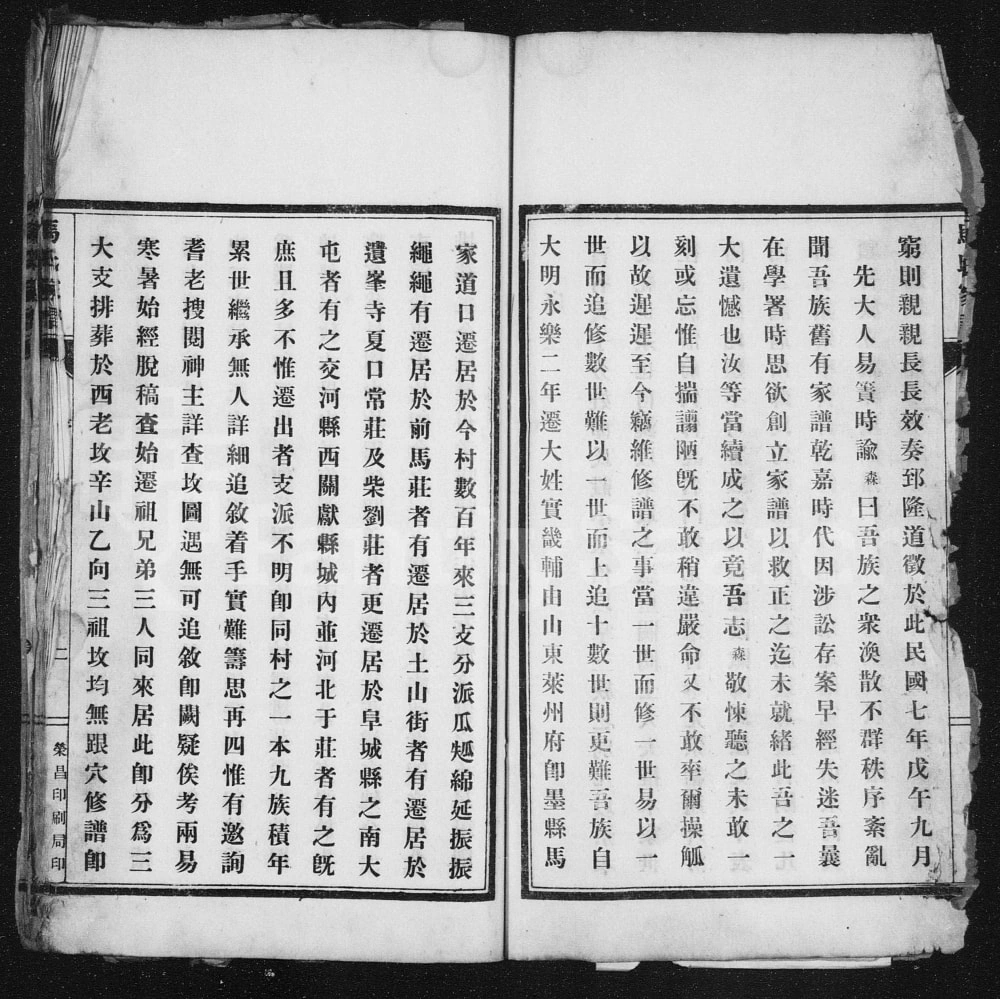 窮則親親長長效奏郅隆道徵於此民國七年戊午九月
先大人易簀時諭森曰吾族之眾渙散不群秩序紊亂
聞吾族舊有家譜乾嘉時代因涉訟存案早經失迷吾曩
在學署時思欲創立家譜以救正之迄未就緒此吾之一
大遺憾也汝等當續成之以竟吾志森敬悚聽之未敢一
刻或忘惟自揣譾陋旣不敢稍違嚴命又不敢率爾操觚
以故遲遲至今竊維修譜之事當一世而修一世易以一
世而追修數世難以一世而上追十數世則更難吾族自
大明永樂二年遷大姓實畿輔由山東萊州府卽墨縣馬
家道口遷居於今村數百年來三支分派瓜瓞綿延振振
繩繩有遷居於前馬莊者有遷居於土山街者有遷居於
遺峯寺夏口常莊及柴劉莊者更遷居於阜城縣之南大
屯者有之交河縣西關獻縣城內並河北于莊者有之旣
庶且多不惟遷出者支派不明卽同村之一本九族積年
累世繼承無人詳細追敘着手實難籌思再四惟有邀詢
耆老搜閱神主詳查坟圖遇無可追敘卽闕疑俟考兩易
寒暑始經脫稿查始遷祖兄弟三人同來居此卽分爲三
大支排葬於西老坟辛山乙向三祖坟均無跟穴修譜卽
二
榮昌印刷局印